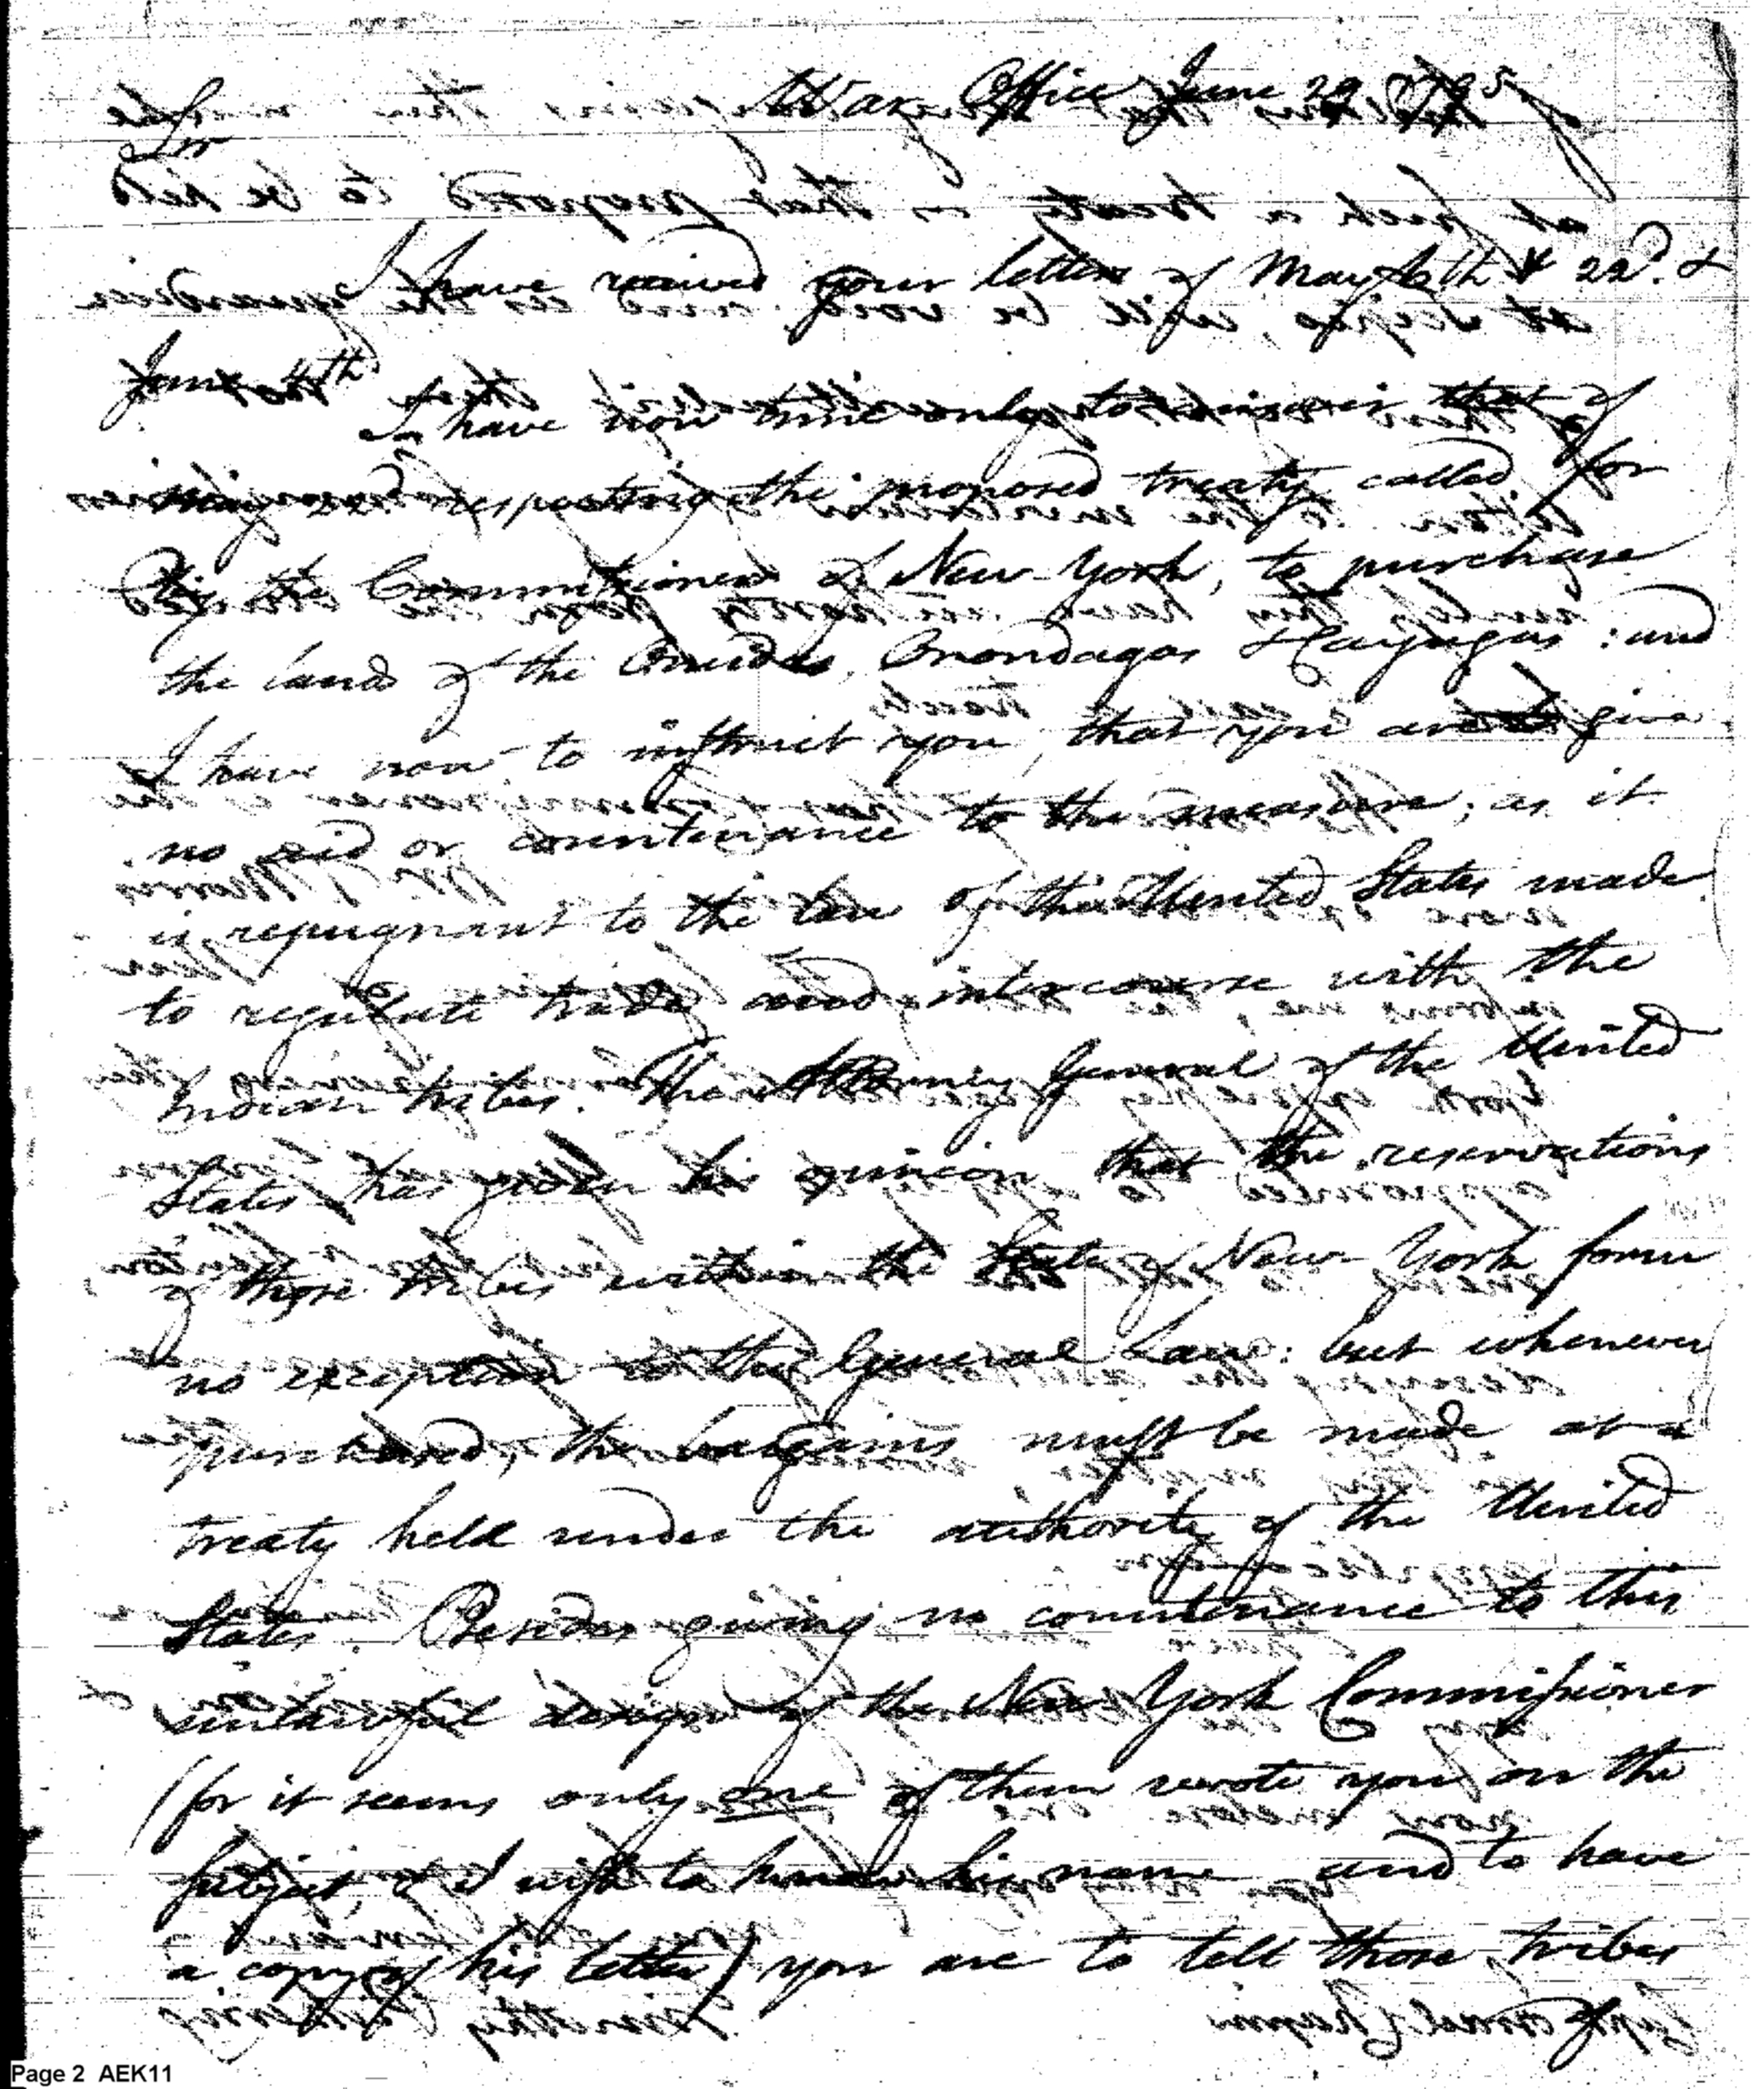 War Office June 29 1795
Sir
I have received your letters of May 6th & 22d. &
June 4th
I have now time only to answer that of
May 22d respecting the proposed treaty called for
By the Commissioners of New-York, to purchase
the lands of the Oneidas, Onondagas & Cayugas: and
I have now to instruct you, that you are to give
no aid or countenance to the measure; as it
is repugnant to the law of the United States made
to regulate trade and intercourse with the
Indian tribes. The Attorney General of the United
States has given his opinion that the reservations
of those tribes within the State of New-York form
no exception to the General Law: but whenever
purchased, the bargains must be made at a
treaty held under the authority of the United
States. Besides giving no countenance to this
unlawful design of the New York Commissioner
(for it seems only one of them wrote you on the
subject, & I wish to know his name and to have
a copy of his letter) you are to tell those tribes
Page 2 AEK11